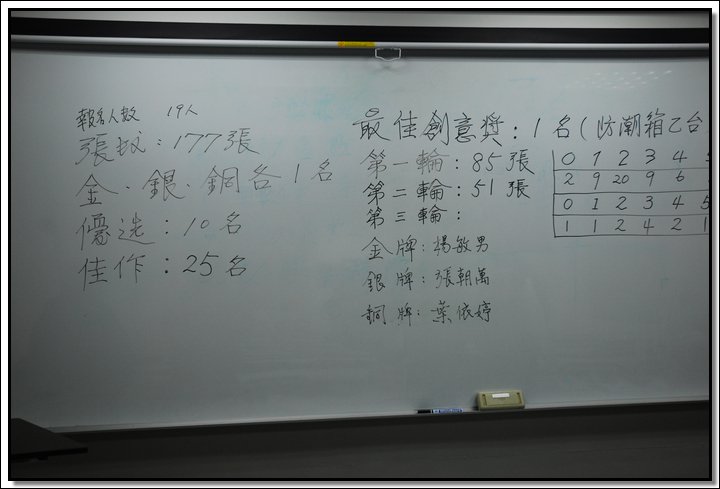 報名人數 19人
張數：177張
金．銀．銅各1名
優选：10名
佳作：25名
最佳創意獎：1名(防潮箱乙台
第一輪：85張
第二輪：51張
第三輪：
金牌：楊敏男
銀牌：張朝萬
銅牌：葉依婷
0 1 2 3 4
2 9 20 9 6
0 1 2 3 4 5
1 1 2 4 2 1